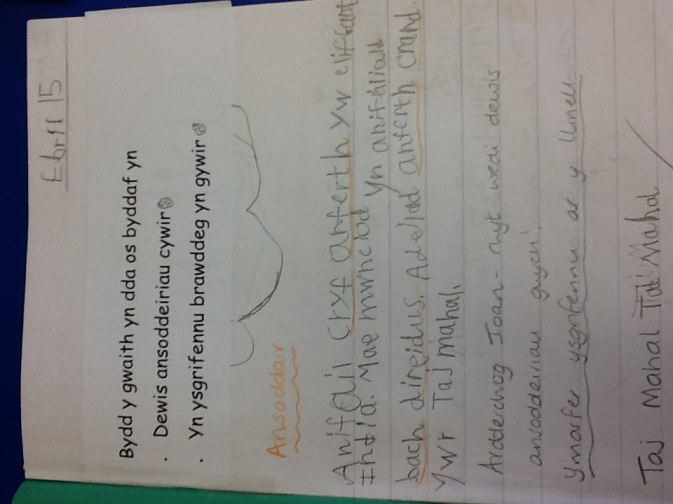 Ebrill 15
Bydd y gwaith yn dda os byddaf yn
. Dewis ansoddeiriau cywir☺
. Yn ysgrifennu brawddeg yn gywir ☺
Ansoddair
Anifail cryf anferth yw'r eliffant
India. Mae mwnciod yn anifeiliaid
bach direidus. Adeilad anferth crand
yw'r Taj mahal.
Ardderchog Ioan - rwyt wedi dewis
ansoddeiriau gwych!
Ymarfer ysgrifennu ar y llinell
Taj Mahal Taj Mahal